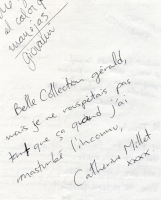 al color q
manojas
Belle Collection gérald,
mais je ne rouspétais pas
tant que ça quand j'ai
masturbé l'inconnu,
Catherine Millet
xxxx